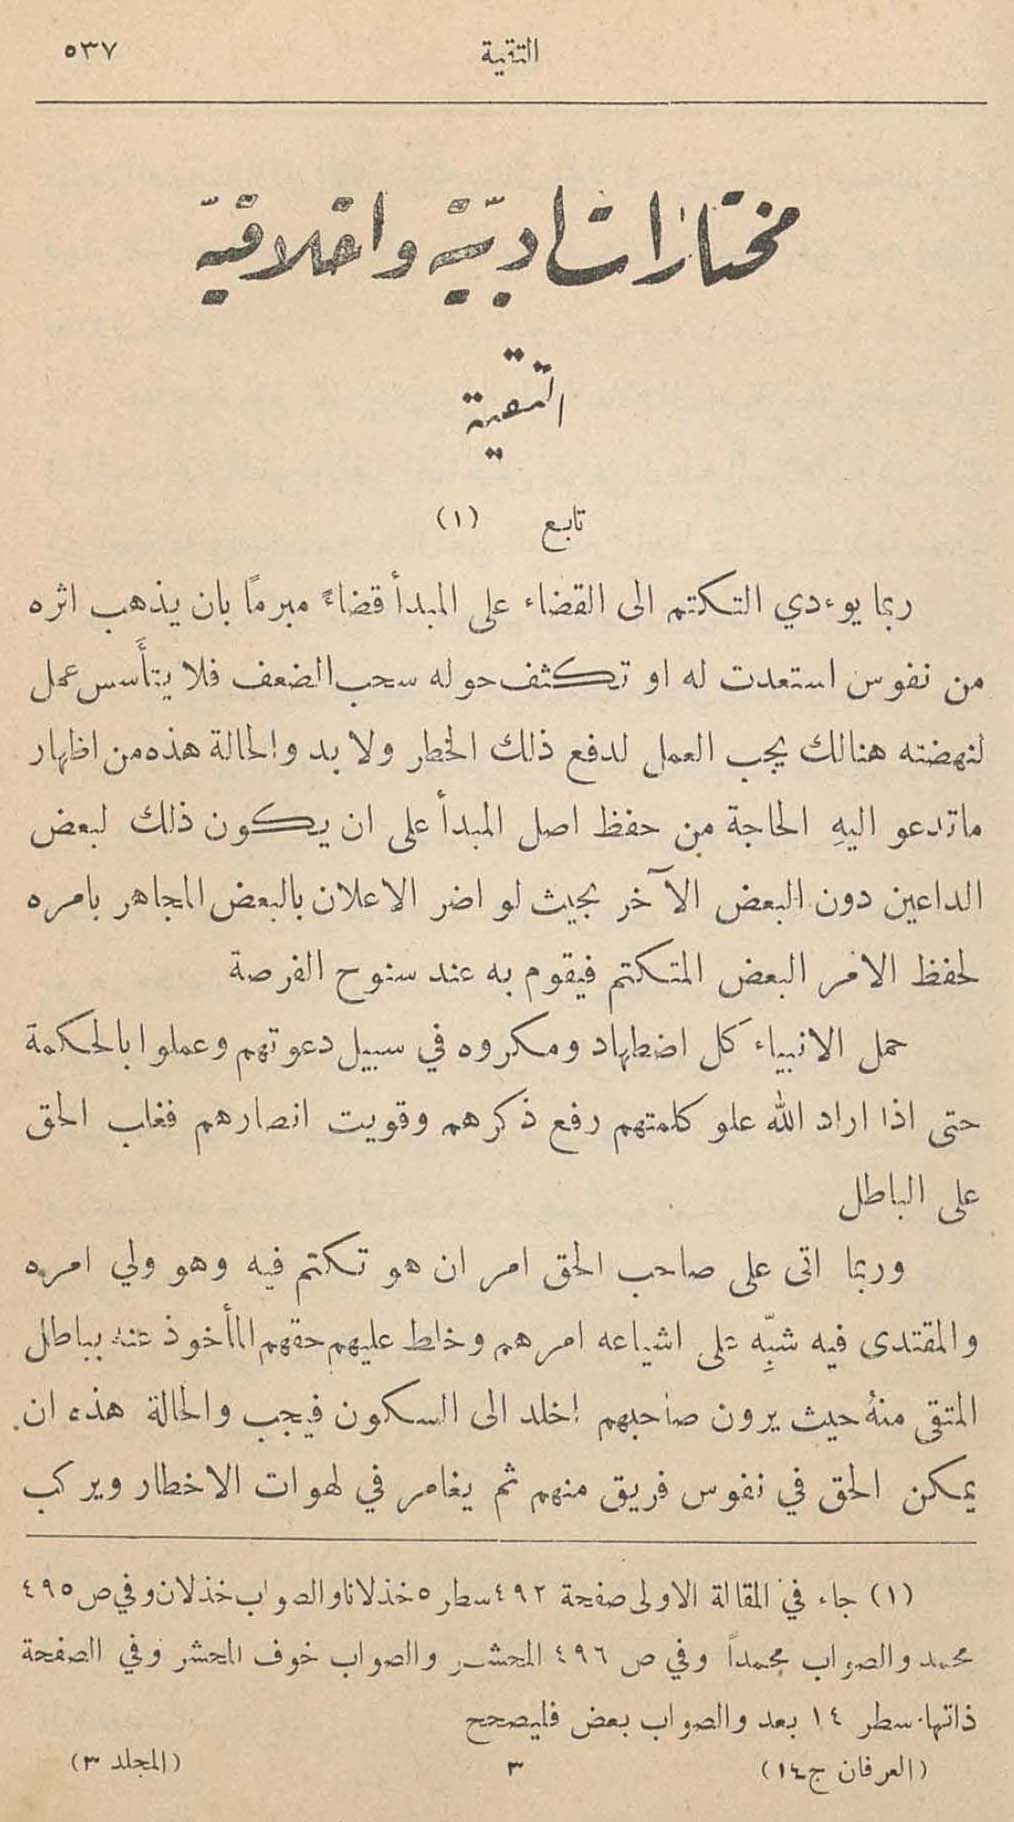 التقية ٥٣٧
مختارات ادبيّة واخلاقيّة
التقية
تابع (١)
ربما يوءدي التكتم الى القضاء على المبدأ قضاءً مبرماً بان يذهب اثره
من نفوس استعدت له او تكثف حوله سحب الضعف فلا يتأَسس عمل
لنهضته هنالك يجب العمل لدفع ذلك الخطر ولا بد والحالة هذه من اظهار
ماتدعو اليهِ الحاجة من حفظ اصل المبدأ على ان يكون ذلك لبعض
الداعين دون البعض الآخر بحيث لو اضر الاعلان بالبعض المجاهر بامره
لحفظ الامر البعض المتكتم فيقوم به عند سنوح الفرصة
حمل الانبياء كل اضطهاد ومكروه في سبيل دعوتهم وعملوا بالحكمة
حتى اذا اراد الله علو كلمتهم رفع ذكرهم وقويت انصارهم فغلب الحق
على الباطل
وربما اتى على صاحب الحق امر ان هو تكتم فيه وهو ولي امره
والمقتدى فيه شبِّه على اشياعه امرهم وخلط عليهم حقهم المأخوذ عنه بباطل
المتقى منهُ حيث يرون صاحبهم اخلد الى السكون فيجب والحالة هذه ان
يمكن الحق في نفوس فريق منهم ثم يغامر في لهوات الاخطار ويركب
(١) جاء في المقالة الاولى صفحة ٤٩٢ سطر ٥ خذلانا والصواب خذلان وفي ص ٤٩٥
محمد والصواب محمداً وفي ص ٤٩٦ المحشر والصواب خوف المحشر وفي الصفحة
ذاتها سطر ١٤ بعد والصواب بعض فليصحح
(العرفان ج١٤) ٣ (المجلد ٣)